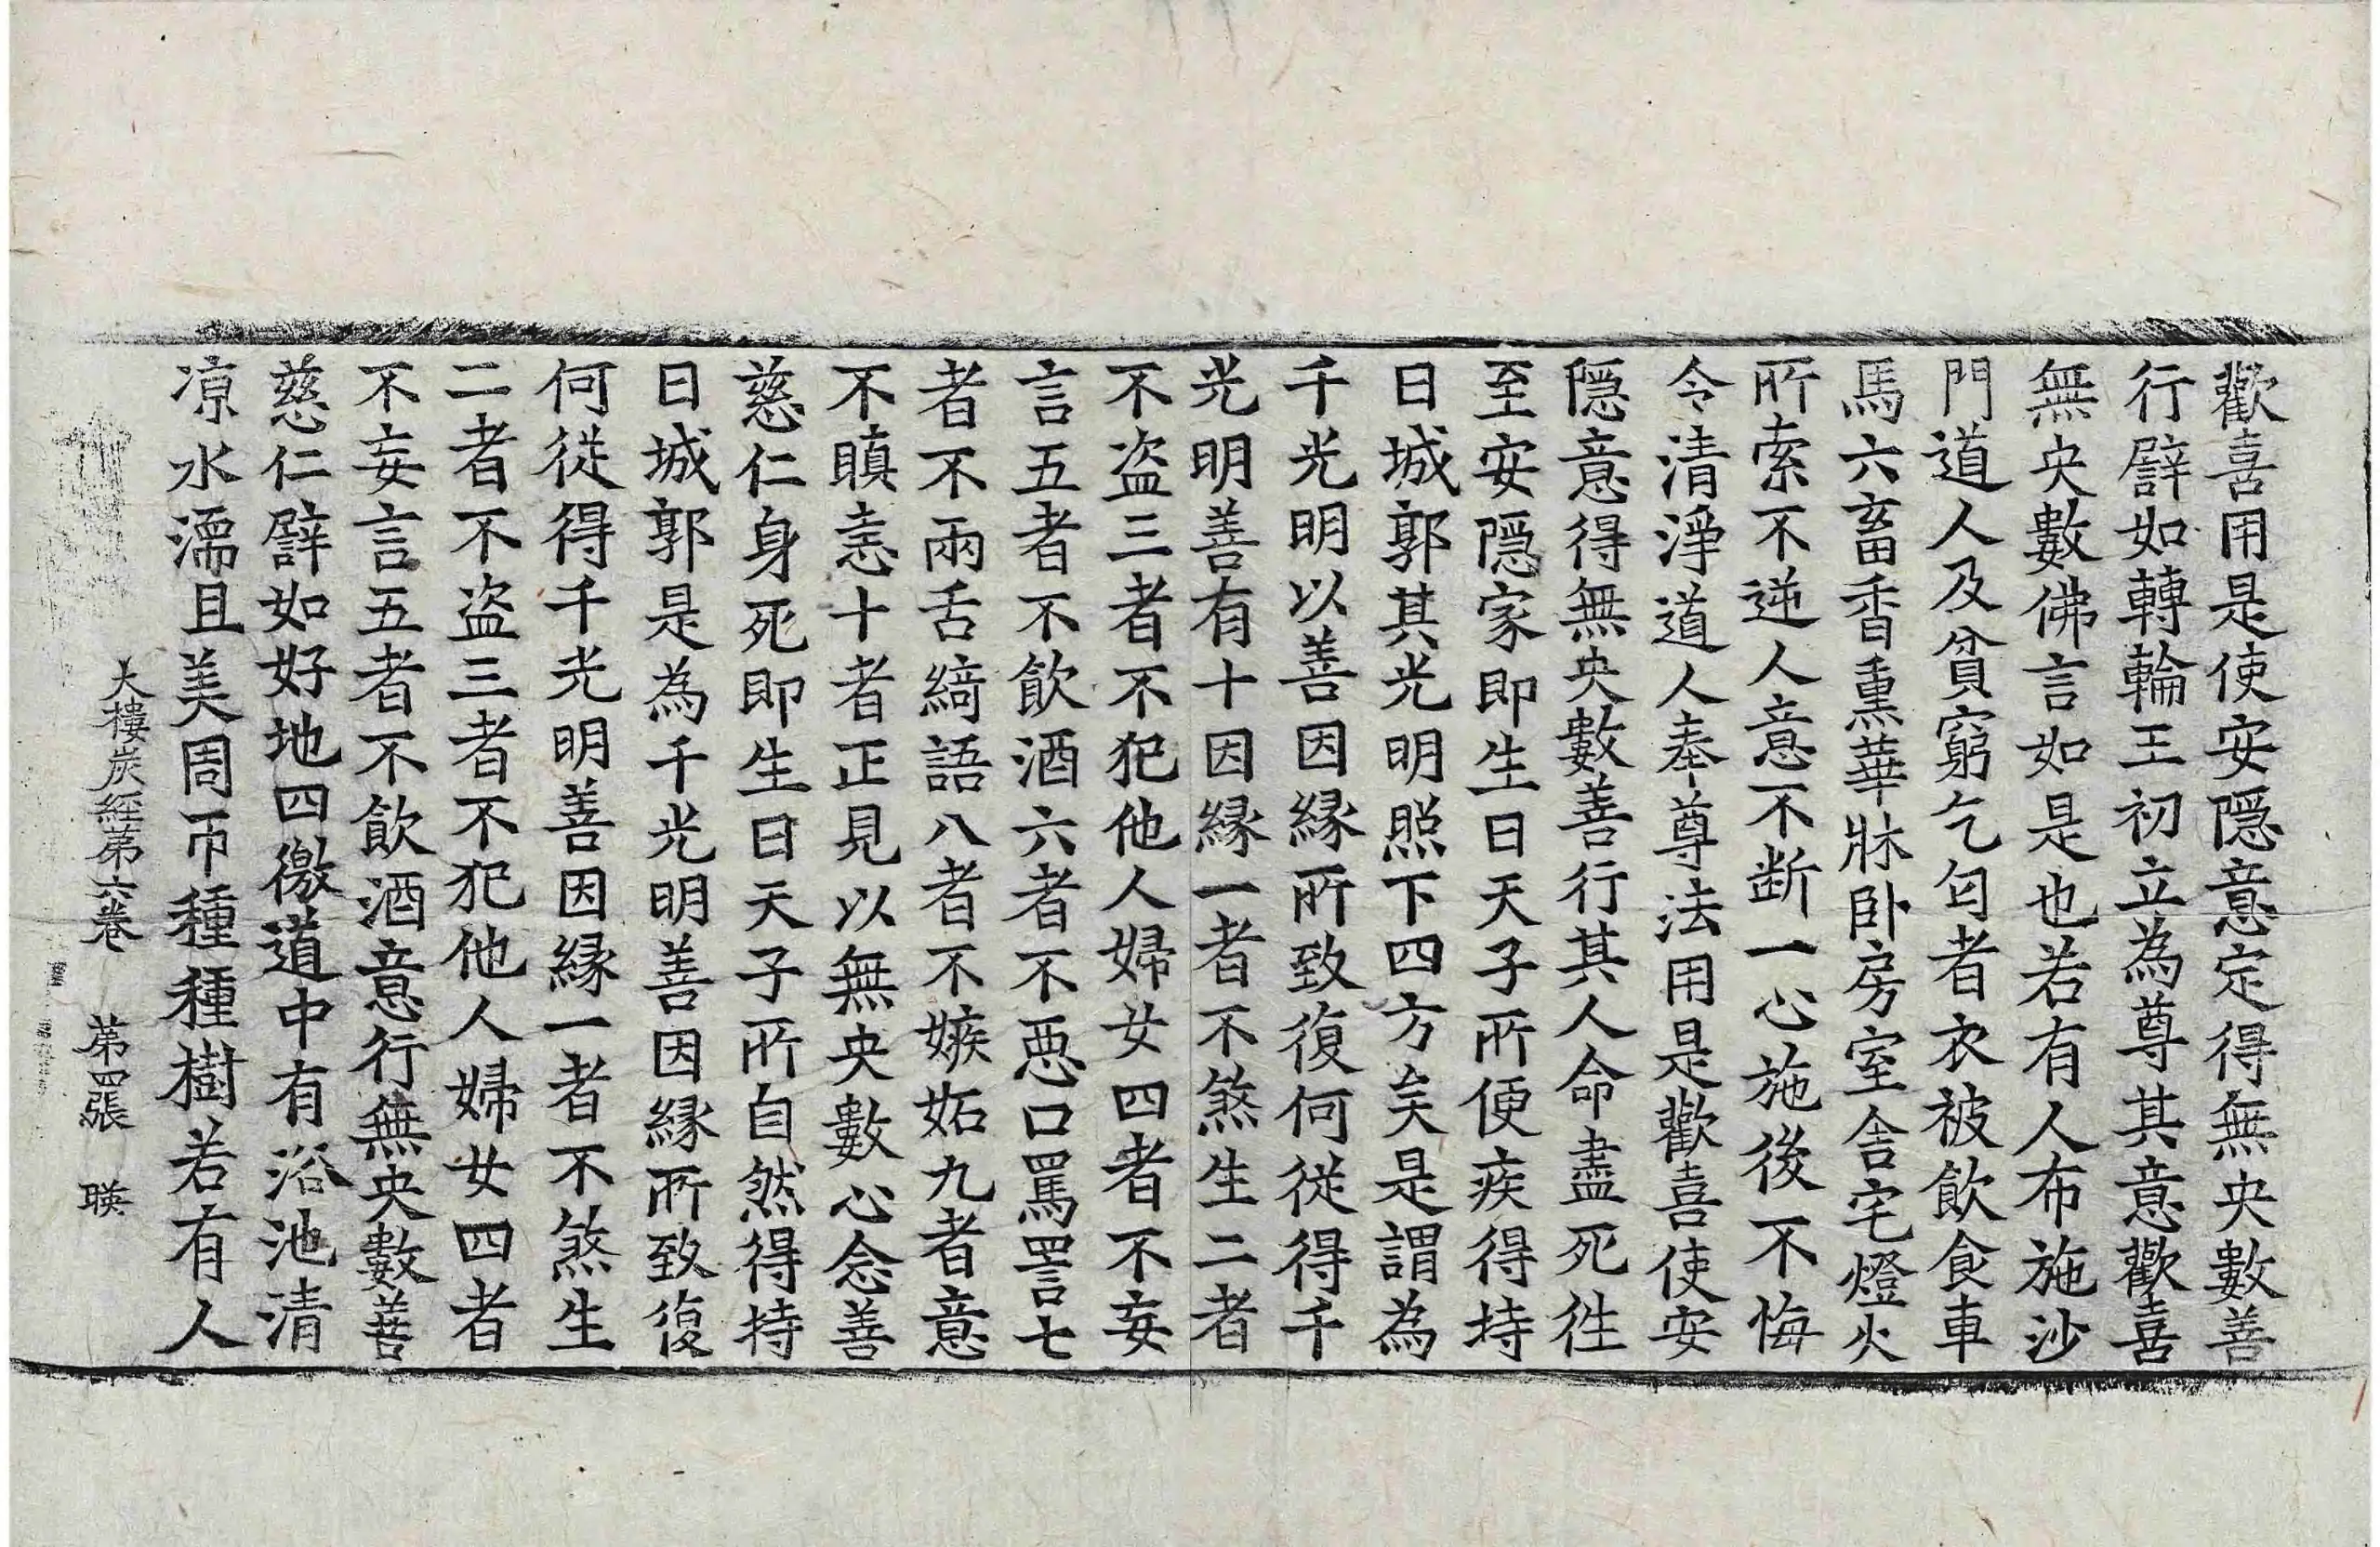 歡喜用是使安隱意定得無央數善
行譬如轉輪王初立為尊其意歡喜
無央數佛言如是也若有人布施沙
門道人及貧窮乞匃者衣被飲食車
馬六畜香熏華牀卧房室舍宅燈火
所索不逆人意不断一心施後不悔
令清淨道人奉尊法用是歡喜使安
隱意得無央數善行其人命盡死徃
至安隱家即生日天子所便疾得持
日城郭其光明照下四方矣是謂為
千光明以善因縁所致復何從得千
光明善有十因縁一者不煞生二者
不盗三者不犯他人婦女四者不妄
言五者不飲酒六者不惡口罵詈七
者不兩舌綺語八者不嫉妬九者意
不瞋恚十者正見以無央數心念善
慈仁身死即生日天子所自然得持
日城郭是為千光明善因縁所致復
何從得千光明善因縁一者不煞生
二者不盗三者不犯他人婦女四者
不妄言五者不飲酒意行無央數善
慈仁譬如好地四徼道中有浴池清
凉水濡且美周帀種種樹若有人
大樓炭經第六卷 第四張 暎